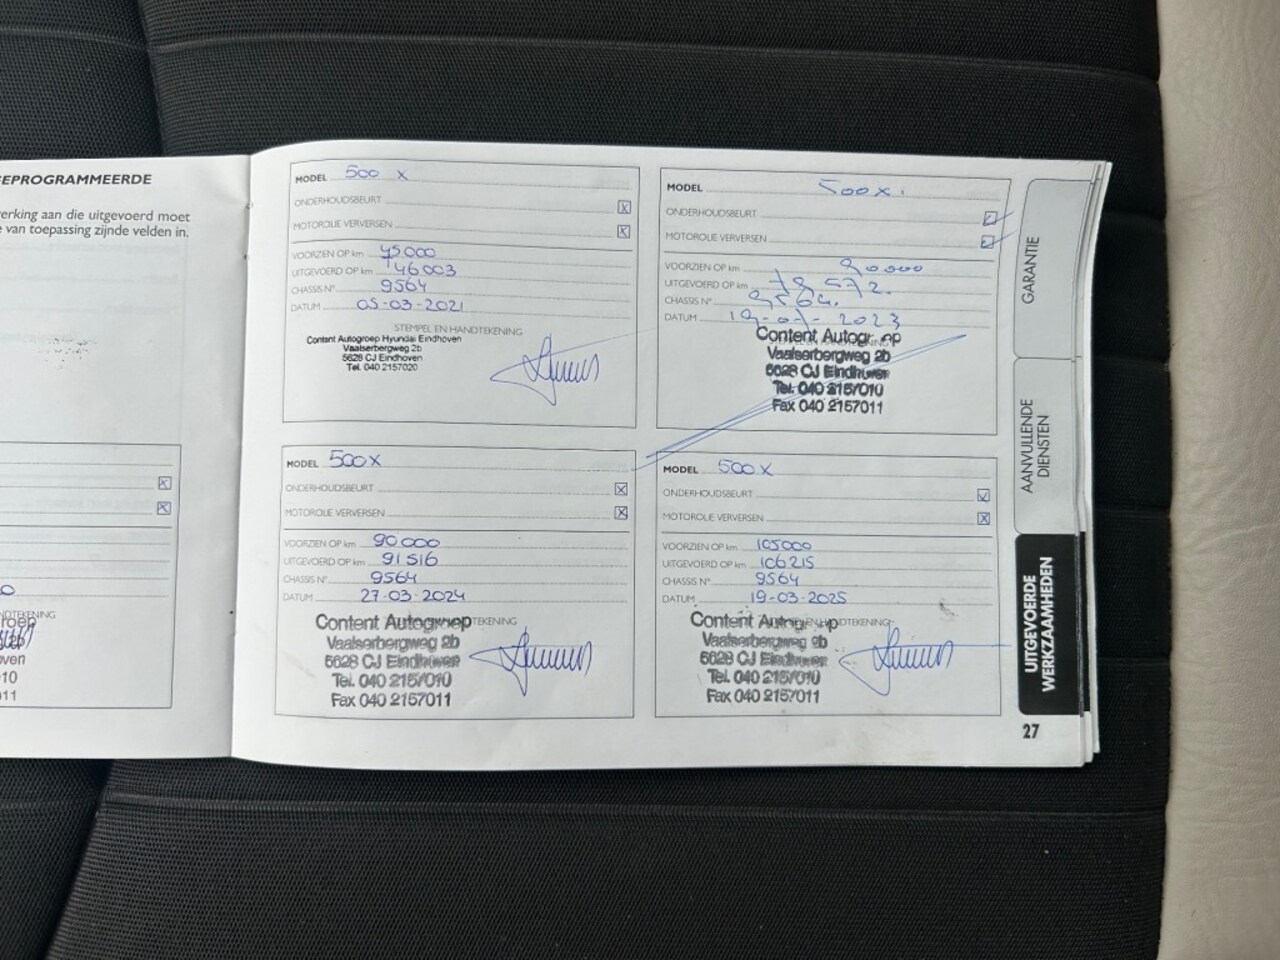 EPROGRAMMEERDE
erking aan die uitgevoerd moet
van toepassing zijnde velden in.
MODEL 500 X
ONDERHOUDSBEURT
MOTOROLIE VERVERSEN
VOORZIEN OP km 45000
UITGEVOERD OP km 46003
CHASSIS N° 9564
DATUM 05-03-2021
STEMPEL EN HANDTEKENING
Content Autogroep Hyundai Eindhoven
Vaalserbergweg 2b
5628 CJ Eindhoven
Tel. 040 2157020
MODEL 500x.
ONDERHOUDSBEURT
MOTOROLIE VERVERSEN
VOORZIEN OP km 90000
UITGEVOERD OP km 78572.
CHASSIS N° 9564.
DATUM 19-07-2023
Content Autogroep
Vaalserbergweg 2b
5628 CJ Eindhoven
Tel. 040 2157010
Fax 040 2157011
MODEL 500X
ONDERHOUDSBEURT
MOTOROLIE VERVERSEN
VOORZIEN OP km 90000
UITGEVOERD OP km 91516
CHASSIS N° 9564
DATUM 27-03-2024
TEKENING
Content Autogroep
Vaalserbergweg 2b
5628 CJ Eindhoven
Tel. 040 2157010
Fax 040 2157011
MODEL 500X
ONDERHOUDSBEURT
MOTOROLIE VERVERSEN
VOORZIEN OP km 105000
UITGEVOERD OP km 106215
CHASSIS N° 9564
DATUM 19-03-2025
EN HANDTEKENING
Content Autogroep
Vaalserbergweg 2b
5628 CJ Eindhoven
Tel. 040 2157010
Fax 040 2157011
GARANTIE
AANVULLENDE
DIENSTEN
UITGEVOERDE
WERKZAAMHEDEN
27